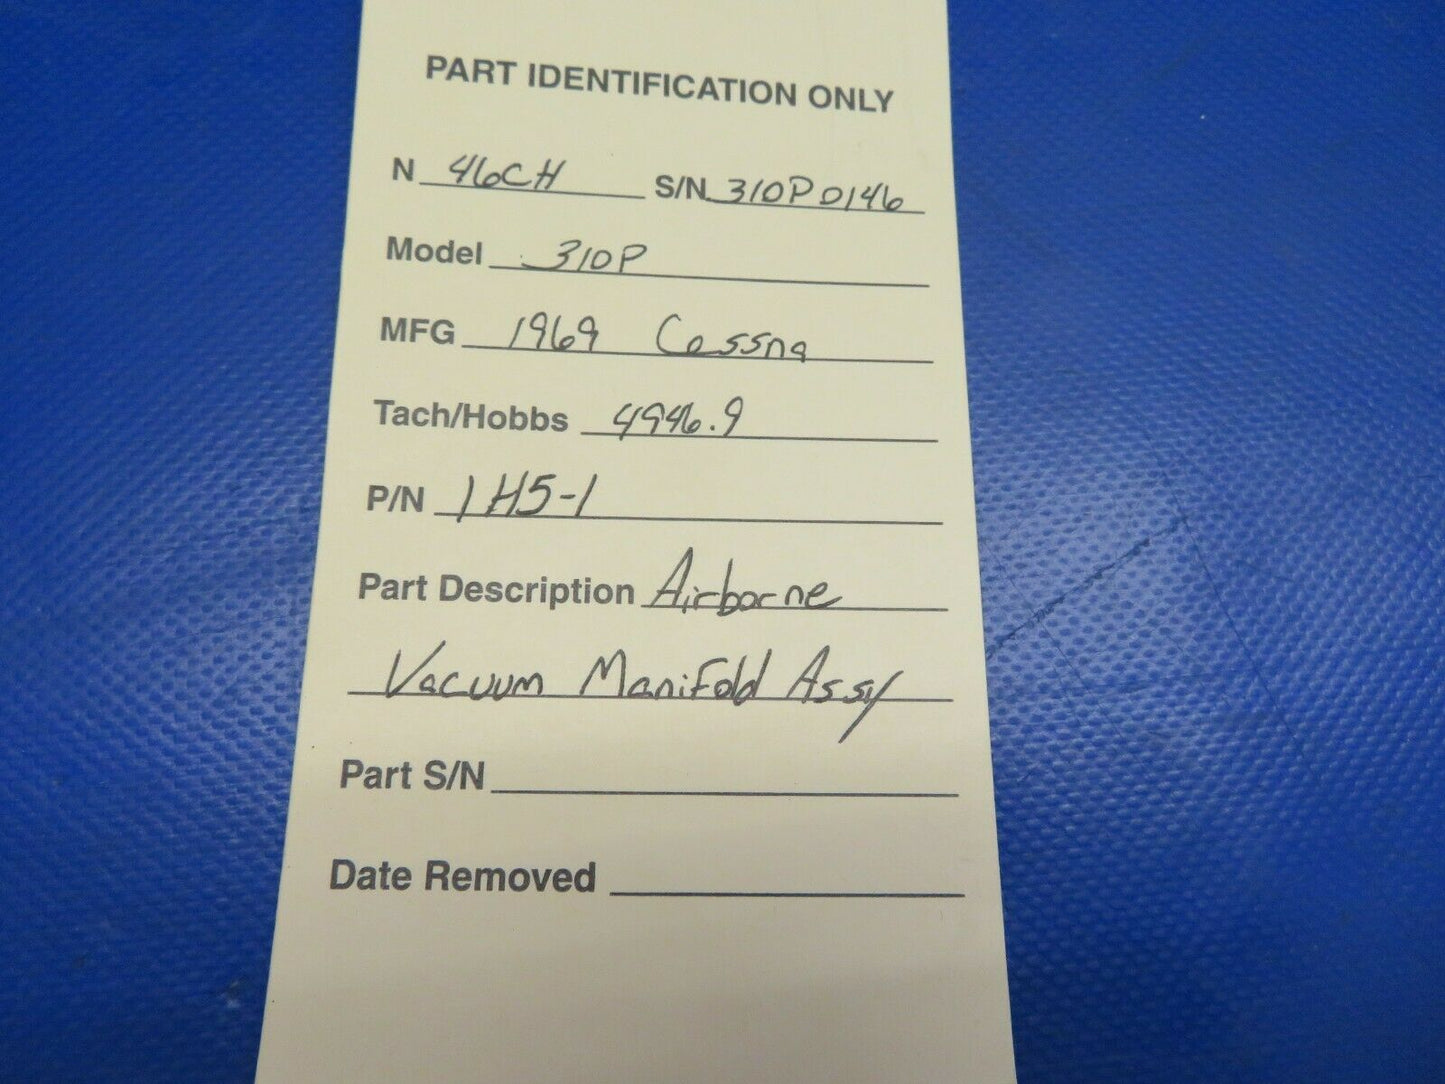 PART IDENTIFICATION ONLY
N 46CH S/N 310P0146
Model 310P
MFG 1969 Cessna
Tach/Hobbs 4946.9
P/N 1H5-1
Part Description Airborne
Vacuum Manifold Assy
Part S/N
Date Removed